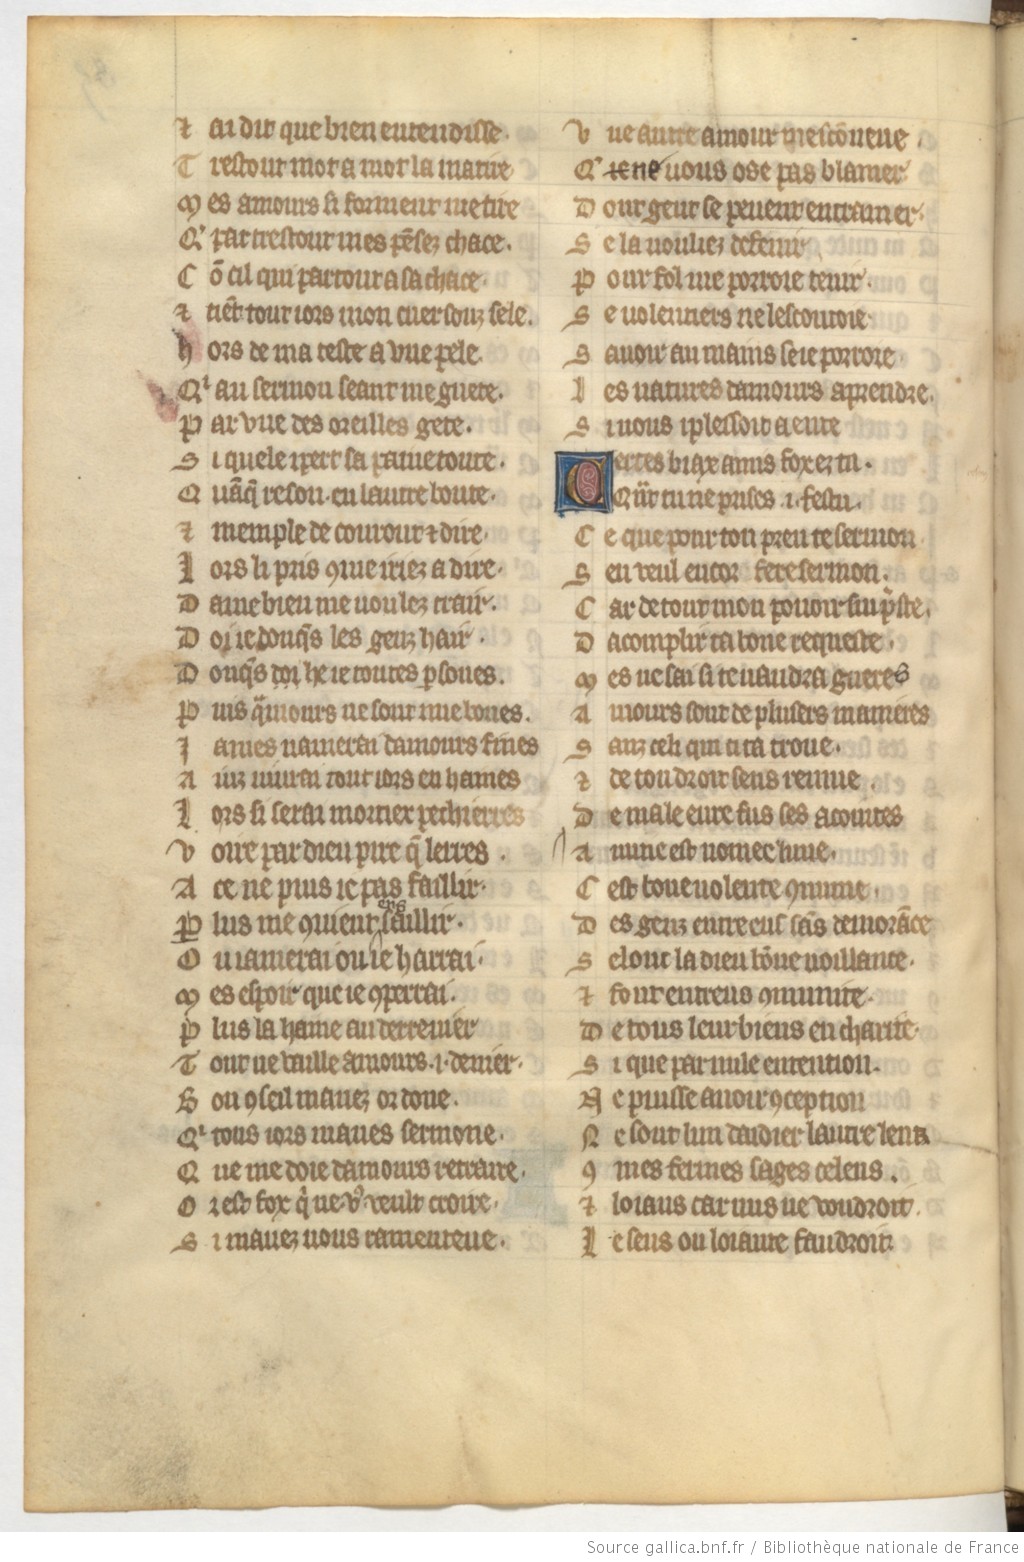 ⁊ ai dit que bien entendisse.
T restout mot a mot la matire
M es amours si forment me tire
Qi par trestout mes pēsez chace.
C ō cil qui partout a sa chace.
⁊ tiēt touz iors mon cuer souz sele.
h ors de ma teste a vne pele.
Qi au sermon seant me guete.
P ar vne des oreilles gete.
S i quele ipert sa paine toute.
Q uāq̄ reson en lautre boute.
⁊ memple de courouz ⁊ dire.
L ors li pris ꝯme iriez a dire.
D ame bien me voulez trair.
D oi ie donq̄s les genz hair.
D onq̄s doi he ie toutes ꝑsones.
P uis q̄mours ne sont mie bones.
J ames namerai damours fines
A inz uiurai tout iors en haines
L ors si serai mortex pechierres
V oire par dieu pire q̄ lerres.
A ce ne puis ie pas faillir.
P lus me ꝯuient saillir.
ers
O u iamerai ou ie harrai.
M es espoir que ie ꝯperrai.
P lus la haine au derrenier
T out ne vaille amours .i. denier.
B on ꝯseil mauez or done.
Qi tous iors maues sermone.
Q ue me doie damours retraire.
O r est fox q̇ ne vꝰ veult croire.
S i mauez uous ramenteue.
V ne autre amour mescōneue.
Q' ie ne uous ose pas blamer
D ont genz se peuent entramer.
S e la uouliez defenir
P our fol me porroie tenir.
S e uolentiers ne lescoutoie
S auoir au mains se ie porroie
L es natures damours aprendre.
S i uous i plessoit a entre
Certes biax amis fox es tu.
Qn̄t tu ne prises .i. festu.
C e que pour ton preu te sermon
S en ueul encor fere sermon.
C ar de tout mon pouoir sui p̄ste.
D acomplir ta bone requeste.
M es ne sai si te uaudra gueres
A mours sont de plusers manieres
S anz celi qui ci ta troue.
⁊ de ton droit sens remue.
D e male eure fus ses acointes
A mitie est nomee lune.
C est bone uolente ꝯmune.
D es genz entre eus sās demorāce
S elonc la dieu bōne uoillance.
⁊ soit entreus ꝯmunite.
D e tous leur biens en charite.
S i que par nule entention.
N e puisse auoir ꝯception
N e soit lun daidier lautre lenz
ꝯ mes fermes sages celens.
⁊ loiaus car riens ne voudroit.
L e sens ou loiaute faudroit
Source gallica.bnf.fr / Bibliothèque nationale de France